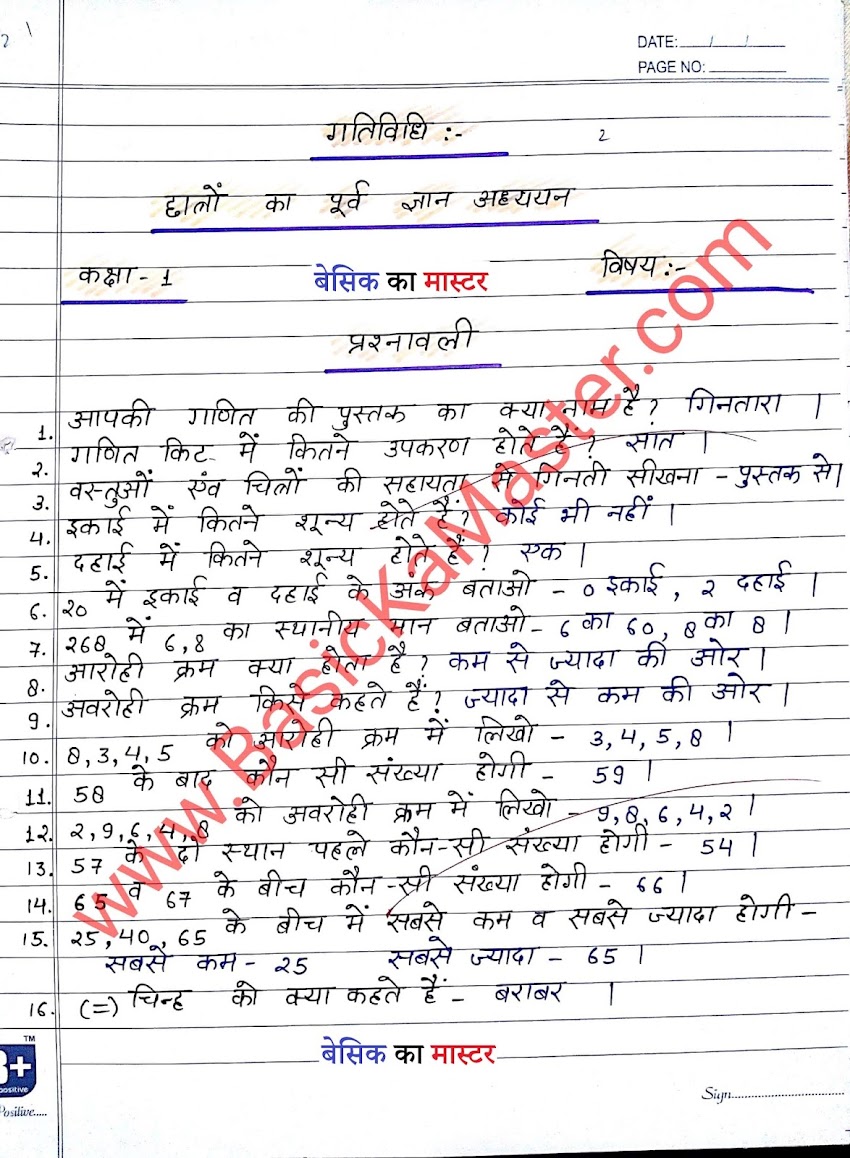 2 1
DATE: / /
PAGE NO:
गतिविधि :- 2
छात्रों का पूर्व ज्ञान अध्ययन
कक्षा - 1 बेसिक का मास्टर विषय :-
प्रश्नावली
1. आपकी गणित की पुस्तक का क्या नाम है? गिनतारा ।
2. गणित किट में कितने उपकरण होते हैं? सात ।
3. वस्तुओं एंव चित्रों की सहायता से गिनती सीखना - पुस्तक से।
4. इकाई में कितने शून्य होते हैं? कोई भी नहीं ।
5. दहाई में कितने शून्य होते हैं? एक ।
6. 20 में इकाई व दहाई के अंक बताओ - 0 इकाई, 2 दहाई ।
7. 268 में 6,8 का स्थानीय मान बताओ - 6 का 60, 8 का 8 ।
8. आरोही क्रम क्या होता है? कम से ज्यादा की ओर ।
9. अवरोही क्रम किसे कहते हैं? ज्यादा से कम की ओर ।
10. 8,3,4,5 को आरोही क्रम में लिखो - 3,4,5,8 ।
11. 58 के बाद कौन सी संख्या होगी - 59 ।
12. 2,9,6,4,8 को अवरोही क्रम में लिखो - 9,8,6,4,2 ।
13. 57 के दो स्थान पहले कौन-सी संख्या होगी - 54 ।
14. 65 व 67 के बीच कौन-सी संख्या होगी - 66 ।
15. 25,40,65 के बीच में सबसे कम व सबसे ज्यादा होगी -
सबसे कम - 25 सबसे ज्यादा - 65 ।
16. (=) चिन्ह को क्या कहते हैं - बराबर ।
बेसिक का मास्टर
TM
3+
positive
Positive.....
Sign
www.BasicKaMaster.com